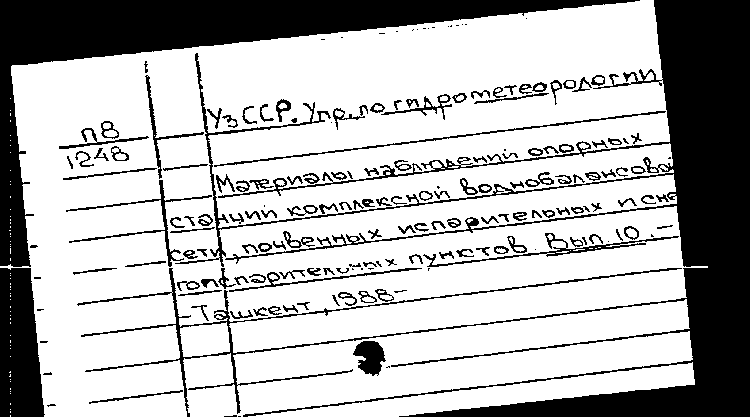 УзССР. Упр. по гидрометеорологии.
п8
1248
Материалы наблюдений опорных
станций комплексной воднобалансовой
сети, почвенных испарительных и сне
гоиспарительных пунктов. Вып. 10. –
– Ташкент, 1988 –